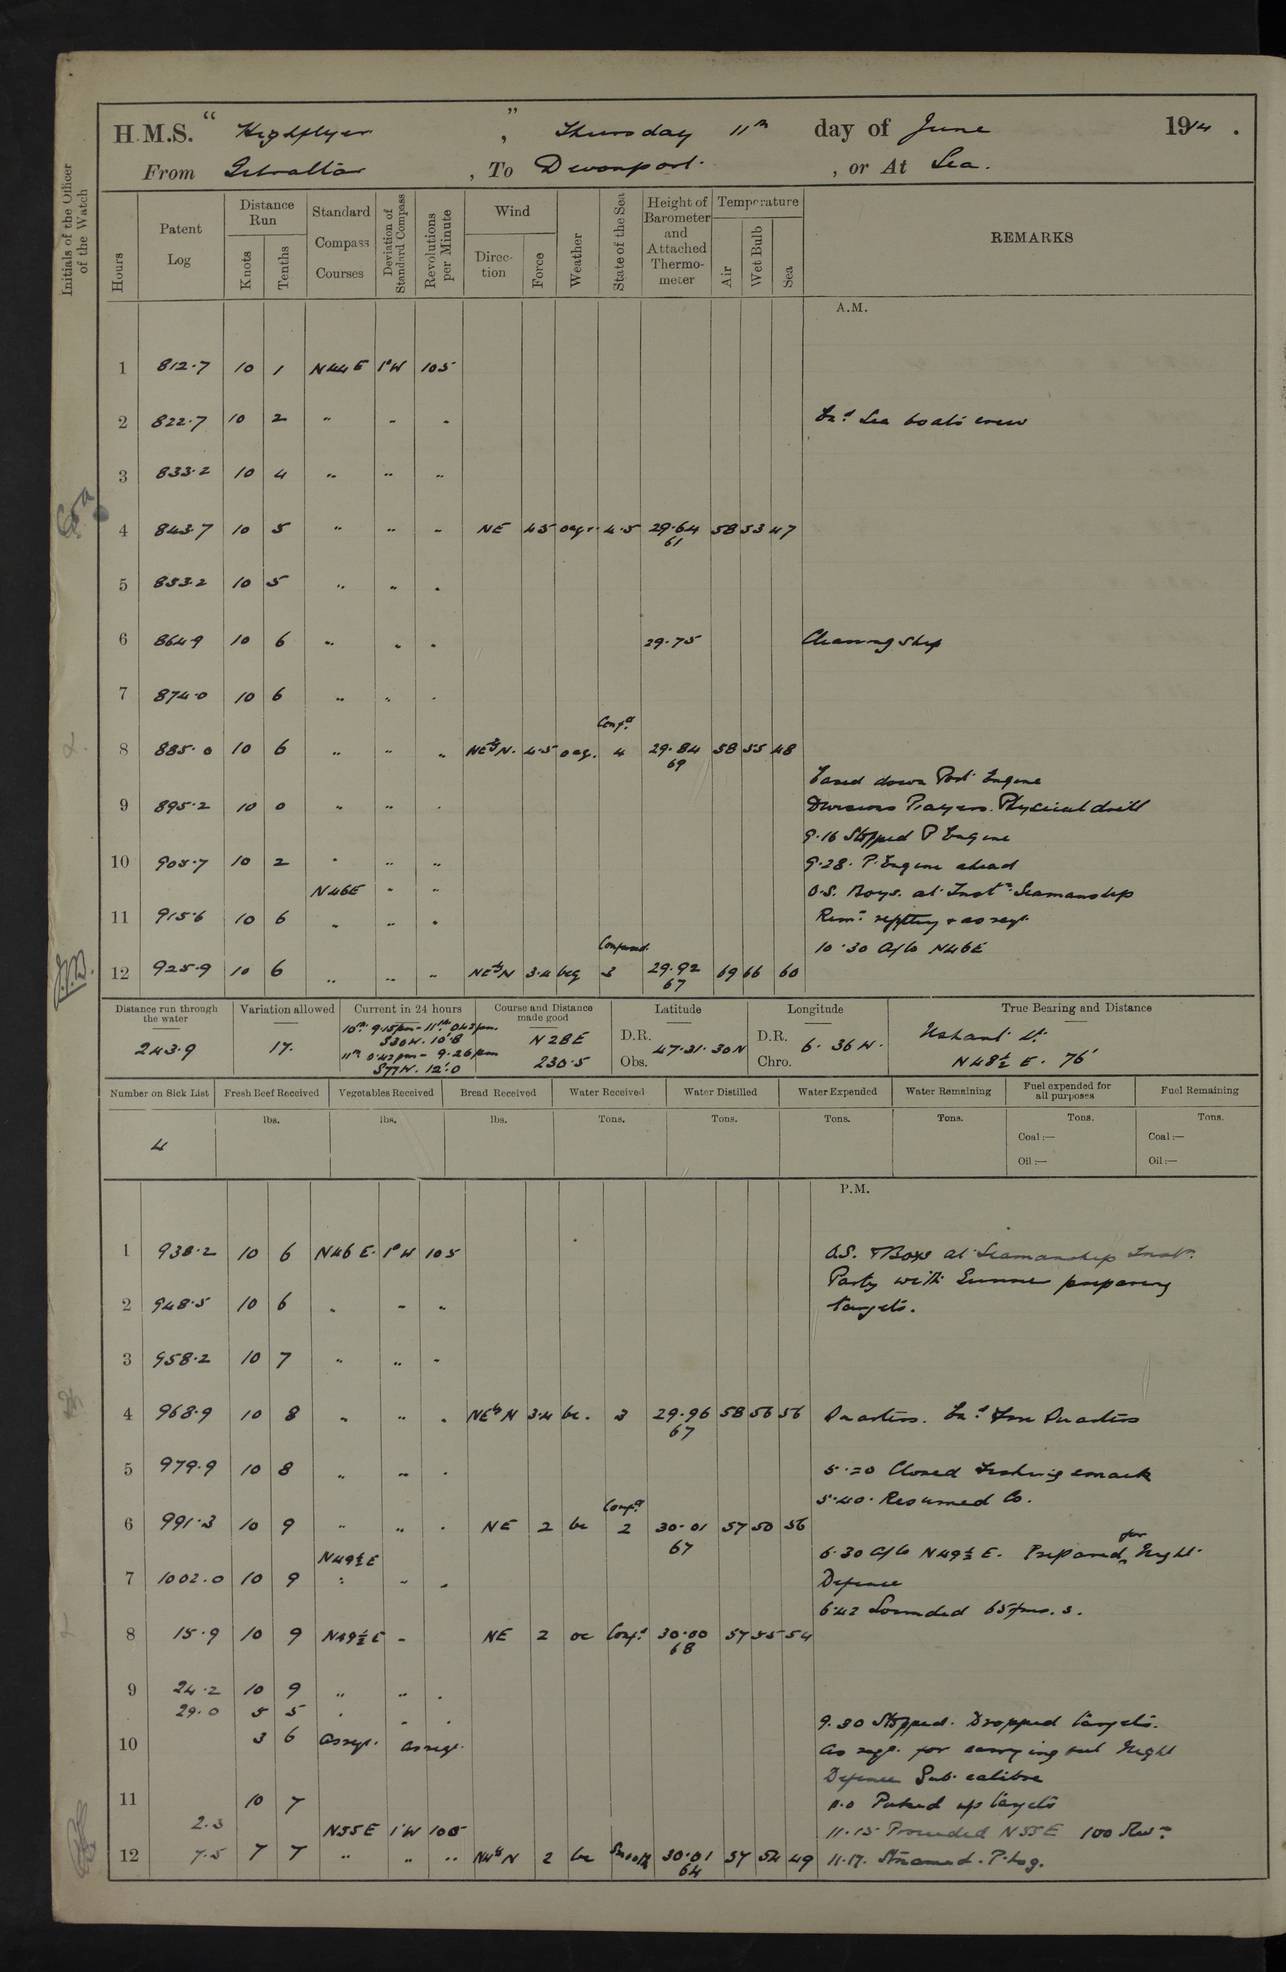 H.M.S. " Highflyer ", Thursday 11th day of June 1914.
From Gibraltar, To Devonport, or At Sea.
Initials of the Officer of the Watch
Hours
Patent Log
Distance Run
Knots
Tenths
Standard Compass Courses
Deviation of Standard Compass
Revolutions per Minute
Wind
Direction
Force
Weather
State of the Sea
Height of Barometer and Attached Thermometer
Temperature
Air
Wet Bulb
Sea
REMARKS
A.M.
1 812.7 10 1 N44E 1°W 105
2 822.7 10 2 " " " Exd Sea boats crew
3 833.2 10 4 " " "
4 843.7 10 5 " " " NE 4.5 4.5 29.64 58 53 47
61
5 853.2 10 5 " " "
6 864.9 10 6 " " " 29.75 Cleaning Ship
7 874.0 10 6 " " "
Compd
8 885.0 10 6 " " " NE b N. 4.5 oeg. 4 29.84 58 55 48
69
Eased down Port Engine
9 895.2 10 0 " " " Divisions Prayers. Physical drill
9.16 Stopped P Engine
10 905.7 10 2 " " " 9.28. P. Engine ahead
N46E " " O.S. Boys. at Instn Seamanship
11 915.6 10 6 " " " Remr refitting & as reqt
10.30 A/Co N46E
Compared
12 925.9 10 6 " " " NE b N 3.4 beg 3 29.92 69 66 60
67
Distance run through the water
243.9
Variation allowed
17.
Current in 24 hours
10th 9.15pm - 11th 0.42pm.
S30W. 10'.8
11th 0.42pm - 9.26pm
S77W. 12'.0
Course and Distance made good
N28E
230.5
Latitude
D.R.
Obs.
47.31.30N
Longitude
D.R.
Chro.
6. 36 W.
True Bearing and Distance
Ushant Lt.
N48½E. 76'
Number on Sick List
4
Fresh Beef Received
lbs.
Vegetables Received
lbs.
Bread Received
lbs.
Water Received
Tons.
Water Distilled
Tons.
Water Expended
Tons.
Water Remaining
Tons.
Fuel expended for all purposes
Tons.
Coal:—
Oil:—
Fuel Remaining
Tons.
Coal:—
Oil:—
P.M.
1 938.2 10 6 N46E. 1°W 105 O.S. & Boys at Seamanship Instn.
Party with Gunner preparing
2 948.5 10 6 " " " targets.
3 958.2 10 7 " " "
4 968.9 10 8 " " " NE b N 3.4 bc. 3 29.96 58 56 56 Quarters. Exd Fire Quarters
67
5 979.9 10 8 " " " 5.20 Closed Fishing smack
5.40. Resumed Co.
Compd
6 991.3 10 9 " " " NE 2 bc 2 30.01 57 50 56
67
N49½E 6.30 A/Co N49½E. Prepared for Night
7 1002.0 10 9 " " " Defence
6.42 Sounded 65fms. s.
8 15.9 10 9 N49½E " NE 2 oc Compd 30.00 57 55 54
68
9 24.2 10 9 " " "
29.0 5 5 " " " 9.30 Stopped. Dropped targets.
10 3 6 as reqt. as reqt. As reqt. for carrying out Night
Defence Sub. calibre
11 10 7 11.0 Picked up targets
2.3 N55E 1°W 100 11.15 Proceeded N55E 100 Revs
12 7.5 7 7 " " " b N 2 bc Smooth 30.01 57 54 49 11.17. Streamed. P. Log.
64